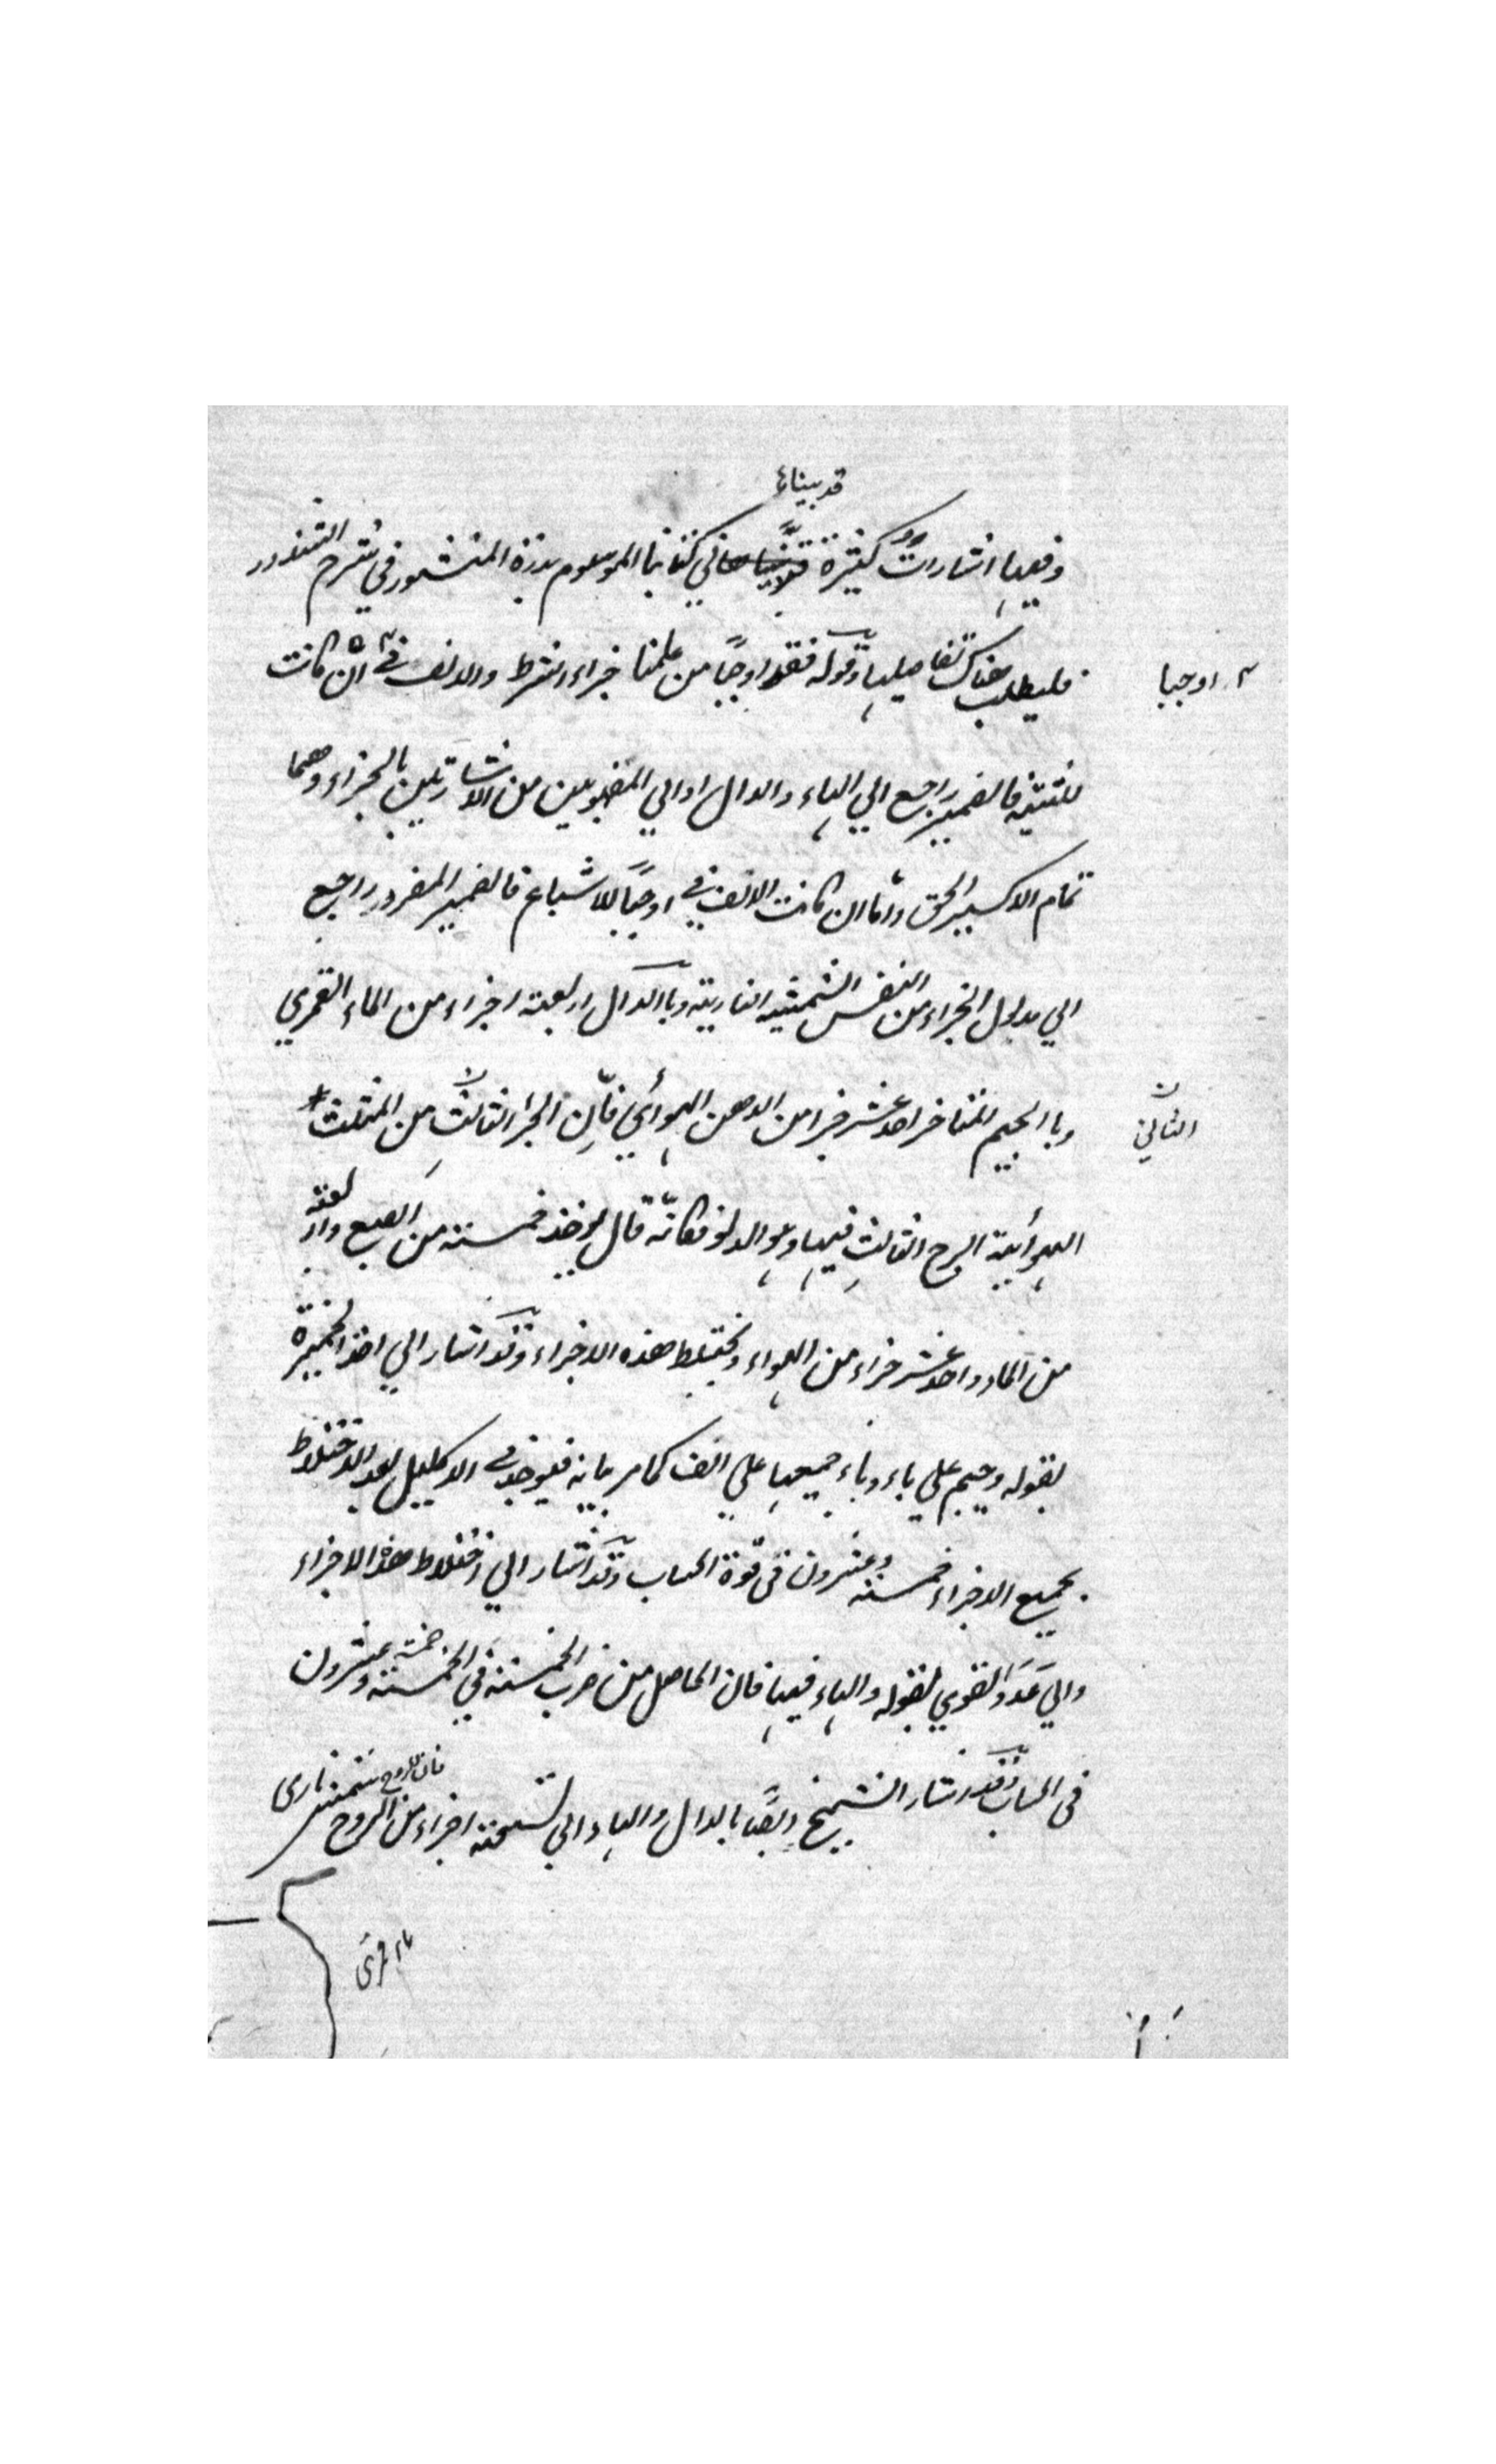 قد بيناها
وفيها اشارات كثيرة في كتابنا الموسوم بدرة المنثور في شرح الشذور
فليطلب هناك تفاصيلها وقوله فقد اوجبا من علمنا جزاء الشرط والالف في ان كانت
اوجبا
للتثنية فالضمير راجع الي الهاء والدال او الي المفهومين من الاشارتين بالجزاء وهما
تمام الاكسير الحق واما ان كانت الالف في اوجبا للاشباع فالضمير المفرد راجع
الي مدلول الجزاء من النفس الشمسية النارية وبا الدال اربعة اجزاء من الماء القمري
وبا الجيم المتاخر احد عشر جزا من الدهن الهوائي فان الجزا الثالث من المثلث
الثاني
الهوائية البرج الثالث فيها وهو الدلو فكانه قال يوخذ خمسة من الصبغ واربعة
من الماء واحد عشر جزاء من الهواء ويختلط هذه الاجزاء وقد اشار الي اخذ الخميرة
بقوله وجيم علي ياء وباء جميعها علي الف كما مر بيانه فيوجد في الاكليل بعد الاختلاط
بجميع الاجزاء خمسة وعشرون في قوة الحساب وقد اشار الي اختلاط هذه الاجزاء
والي عدد القوي بقوله والهاء فيها فان الحاصل من ضرب الخمسة في الخمسة خمسة وعشرون
في الحساب وقد اشار الشيخ ايضا بالدال والهاء الي تسعة اجزاء من الروح
فان الروح شمسى نارى
ماء قمرى